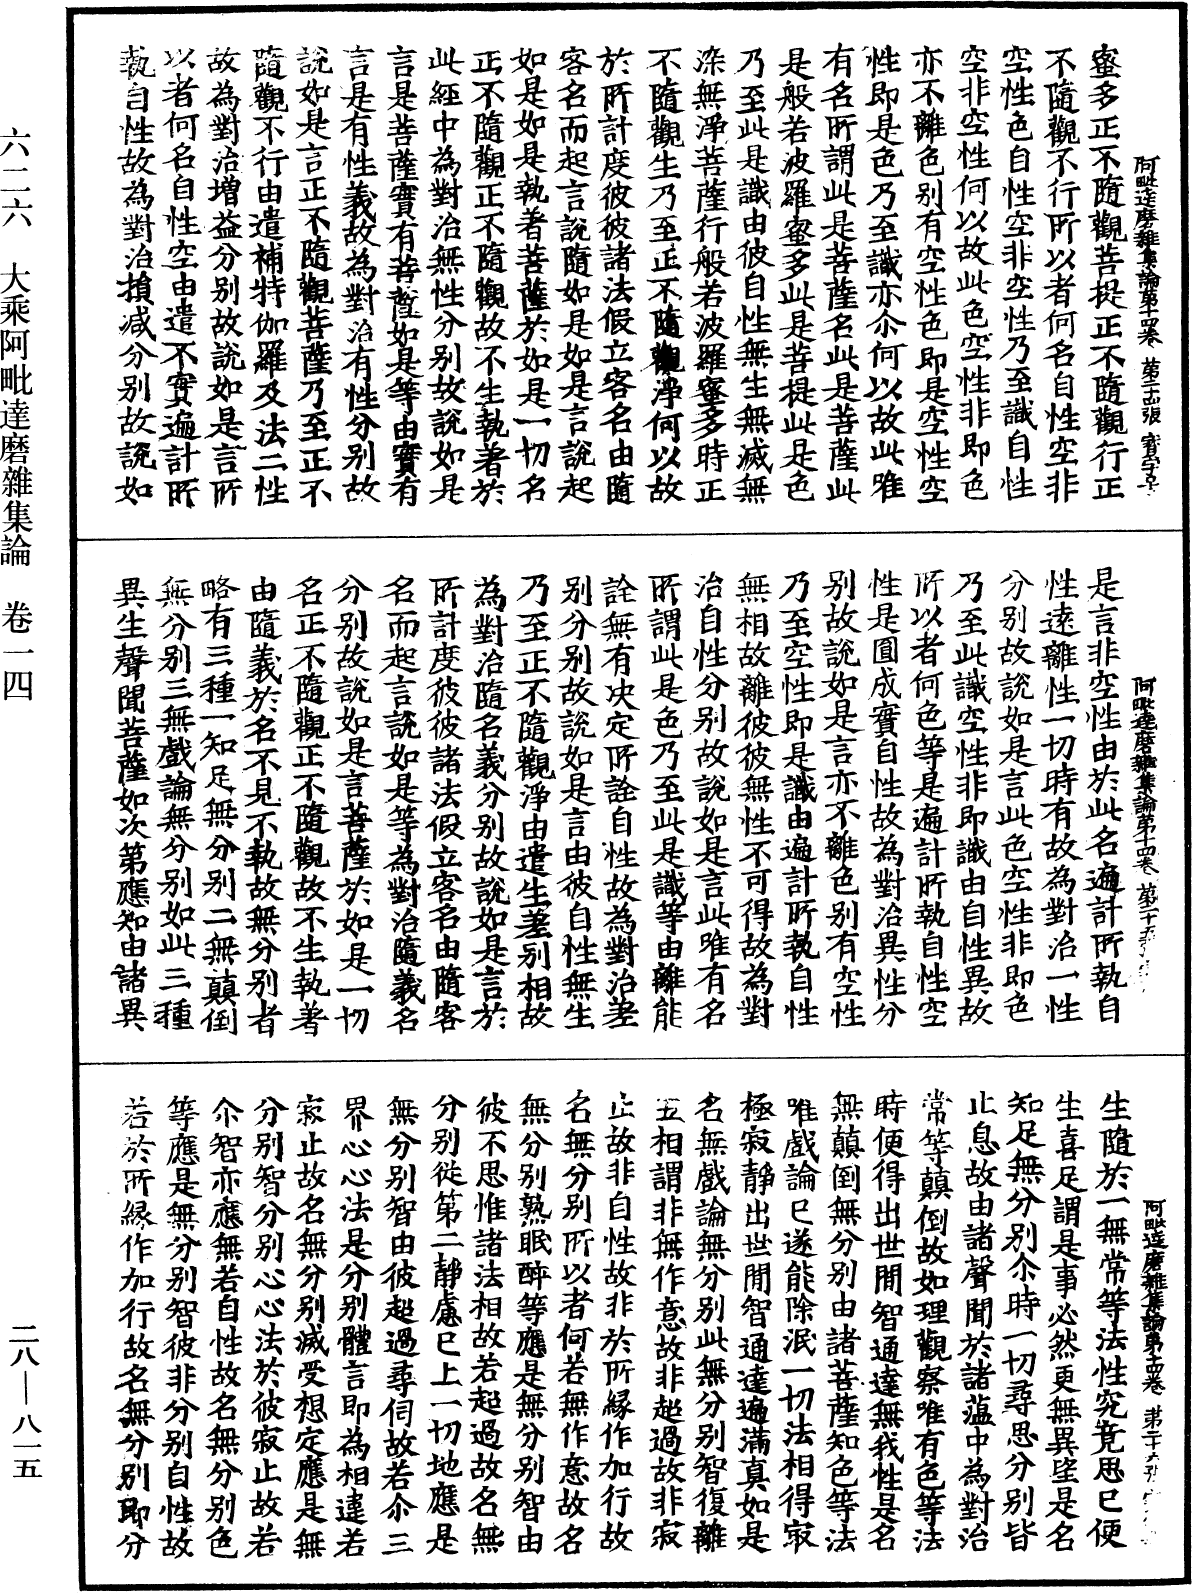 阿毗達磨雜集論第十四卷　第二十四張　寶字号
蜜多正不隨觀菩提正不隨觀行正
不隨觀不行所以者何名自性空非
空性色自性空非空性乃至識自性
空非空性何以故此色空性非即色
亦不離色別有空性色即是空性空
性即是色乃至識亦尒何以故此唯
有名所謂此是菩薩名此是菩薩此
是般若波羅蜜多此是菩提此是色
乃至此是識由彼自性無生無滅無
染無淨菩薩行般若波羅蜜多時正
不隨觀生乃至正不隨觀淨何以故
於所計度彼彼諸法假立客名由隨
客名而起言說隨如是如是言說起
如是如是執著菩薩於如是一切名
正不隨觀正不隨觀故不生執著於
此經中為對治無性分別故說如是
言是菩薩實有菩薩如是等由實有
言是有性義故為對治有性分別故
說如是言正不隨觀菩薩乃至正不
隨觀不行由遣補特伽羅及法二性
故為對治增益分別故說如是言所
以者何名自性空由遣不實遍計所
執自性故為對治損減分別故說如
阿毗達磨雜集論第十四卷　第二十五張
是言非空性由於此名遍計所執自
性遠離性一切時有故為對治一性
分別故說如是言此色空性非即色
乃至此識空性非即識由自性異故
所以者何色等是遍計所執自性空
性是圓成實自性故為對治異性分
別故說如是言亦不離色別有空性
乃至空性即是識由遍計所執自性
無相故離彼彼無性不可得故為對
治自性分別故說如是言此唯有名
所謂此是色乃至此是識等由離能
詮無有決定所詮自性故為對治差
別分別故說如是言由彼自性無生
乃至正不隨觀淨由遣生差別相故
為對治隨名義分別故說如是言於
所計度彼彼諸法假立客名由隨客
名而起言說如是等為對治隨義名
分別故說如是言菩薩於如是一切
名正不隨觀正不隨觀故不生執著
由隨義於名不見不執故無分別者
略有三種一知足無分別二無顛倒
無分別三無戲論無分別如此三種
異生聲聞菩薩如次第應知由諸異
阿毗達磨雜集論第十四卷　第二十六張
生隨於一無常等法性究竟思已便
生喜足謂是事必然更無異望是名
知足無分別尒時一切尋思分別皆
止息故由諸聲聞於諸蘊中為對治
常等顛倒故如理觀察唯有色等法
時便得出世間智通達無我性是名
無顛倒無分別由諸菩薩知色等法
唯戲論已遂能除泯一切法相得寂
極寂靜出世間智通達遍滿真如是
名無戲論無分別此無分別智復離
五相謂非無作意故非超過故非寂
止故非自性故非於所緣作加行故
名無分別所以者何若無作意故名
無分別熟眠醉等應是無分別智由
彼不思惟諸法相故若超過故名無
分別從第二靜慮已上一切地應是
無分別智由彼超過尋伺故若尒三
界心心法是分別體言即為相違若
寂止故名無分別滅受想定應是無
分別智分別心心法於彼寂止故若
尒智亦應無若自性故名無分別色
等應是無分別智彼非分別自性故
若於所緣作加行故名無分別即分
六二六　大乘阿毗達磨雜集論　卷一四
二八—八一五